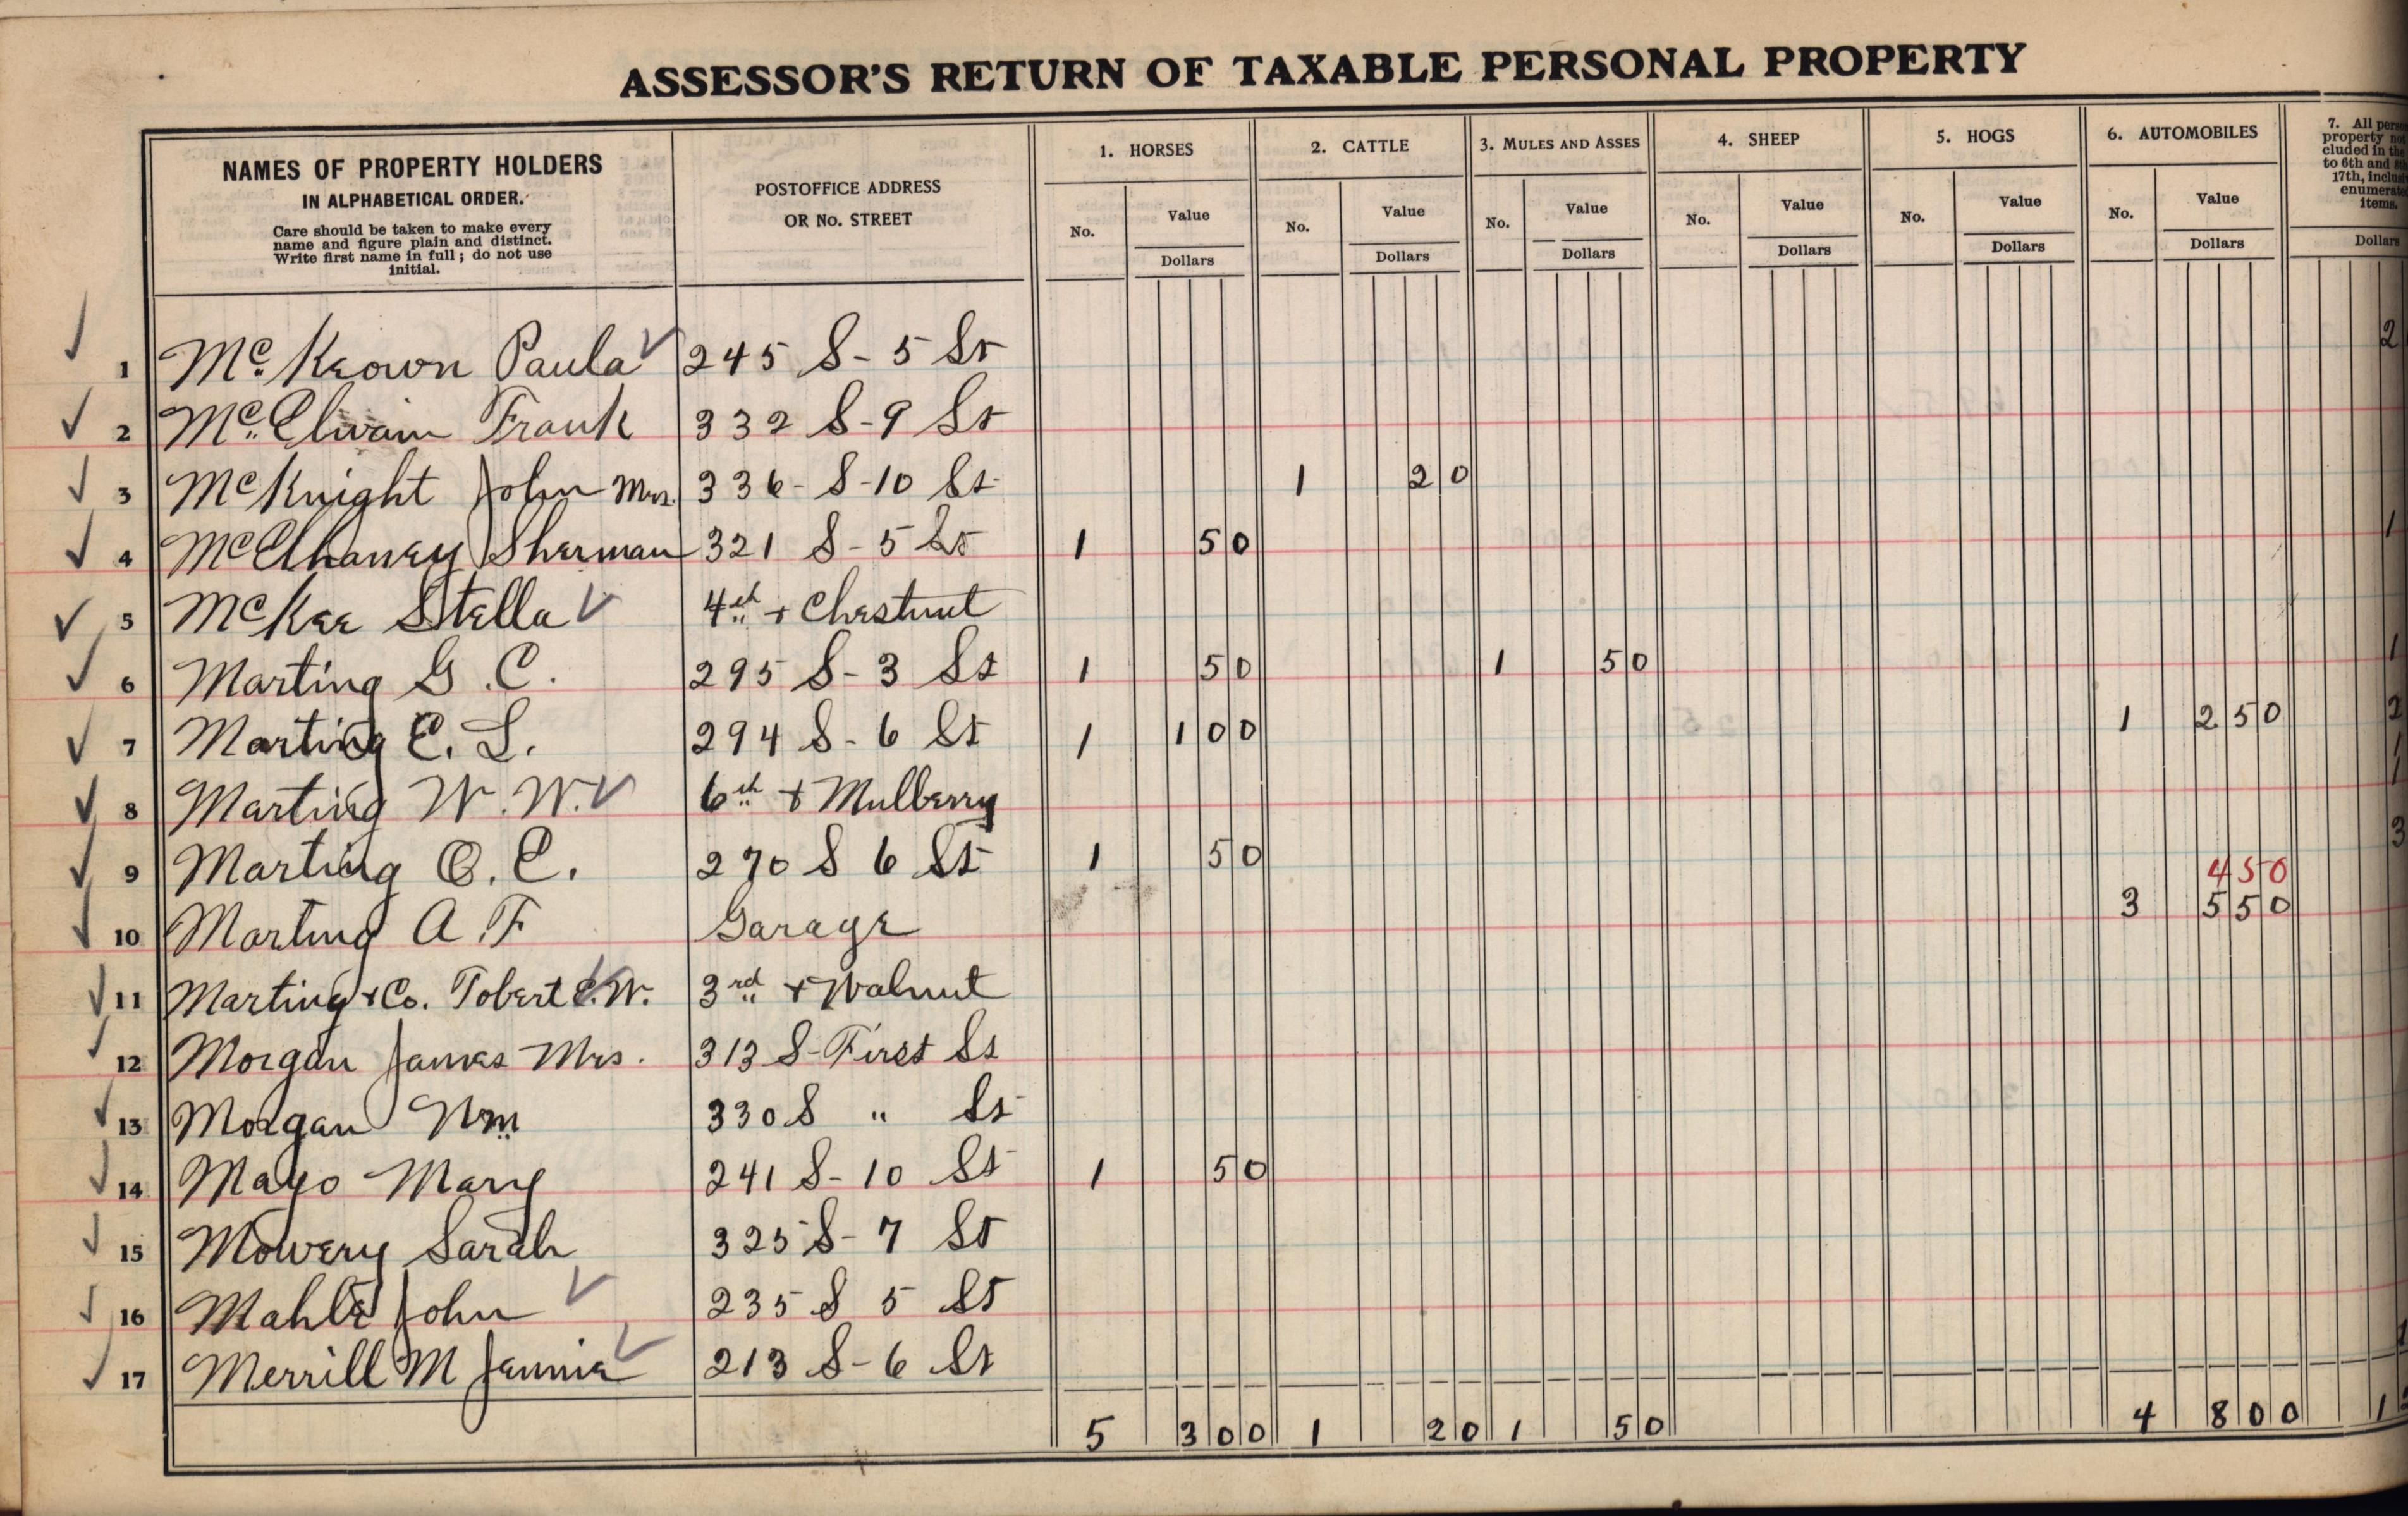 ASSESSOR'S RETURN OF TAXABLE PERSONAL PROPERTY
NAMES OF PROPERTY HOLDERS
IN ALPHABETICAL ORDER.
Care should be taken to make every
name and figure plain and distinct.
Write first name in full; do not use
initial.
POSTOFFICE ADDRESS
OR No. STREET
1. HORSES
No. Value
Dollars
2. CATTLE
No. Value
Dollars
3. MULES AND ASSES
No. Value
Dollars
4. SHEEP
No. Value
Dollars
5. HOGS
No. Value
Dollars
6. AUTOMOBILES
No. Value
Dollars
7. All
property
cluded in
to 6th and
17th,
items.
Dollars
1 McKeown Paula 245 S-5 St 2
2 McElwain Frank 332 S-9 St
3 McKnight John Mrs. 336-S-10 St 1 20
4 McElhaney Sherman 321 S-5 St 1 50 1
5 McKee Stella 4th + Chestnut
6 Marting G.C. 295 S-3 St 1 50 1 50 1
7 Marting E.L. 294 S-6 St 1 100 1 250 2
8 Marting W.W. 6th + Mulberry
9 Marting O.E. 270 S 6 St 1 50 3
450
10 Marting A.F Garage 3 550
11 Marting + Co. Tobert C.W. 3rd + Walnut
12 Morgan James Mrs. 313 S-First St
13 Morgan Wm 330 S " St
14 Mayo Mary 241 S-10 St 1 50
15 Mowery Sarah 325 S-7 St
16 Mahle John 235 S 5 St
17 Merrill M Jennie 213 S-6 St
5 300 1 20 1 50 4 800